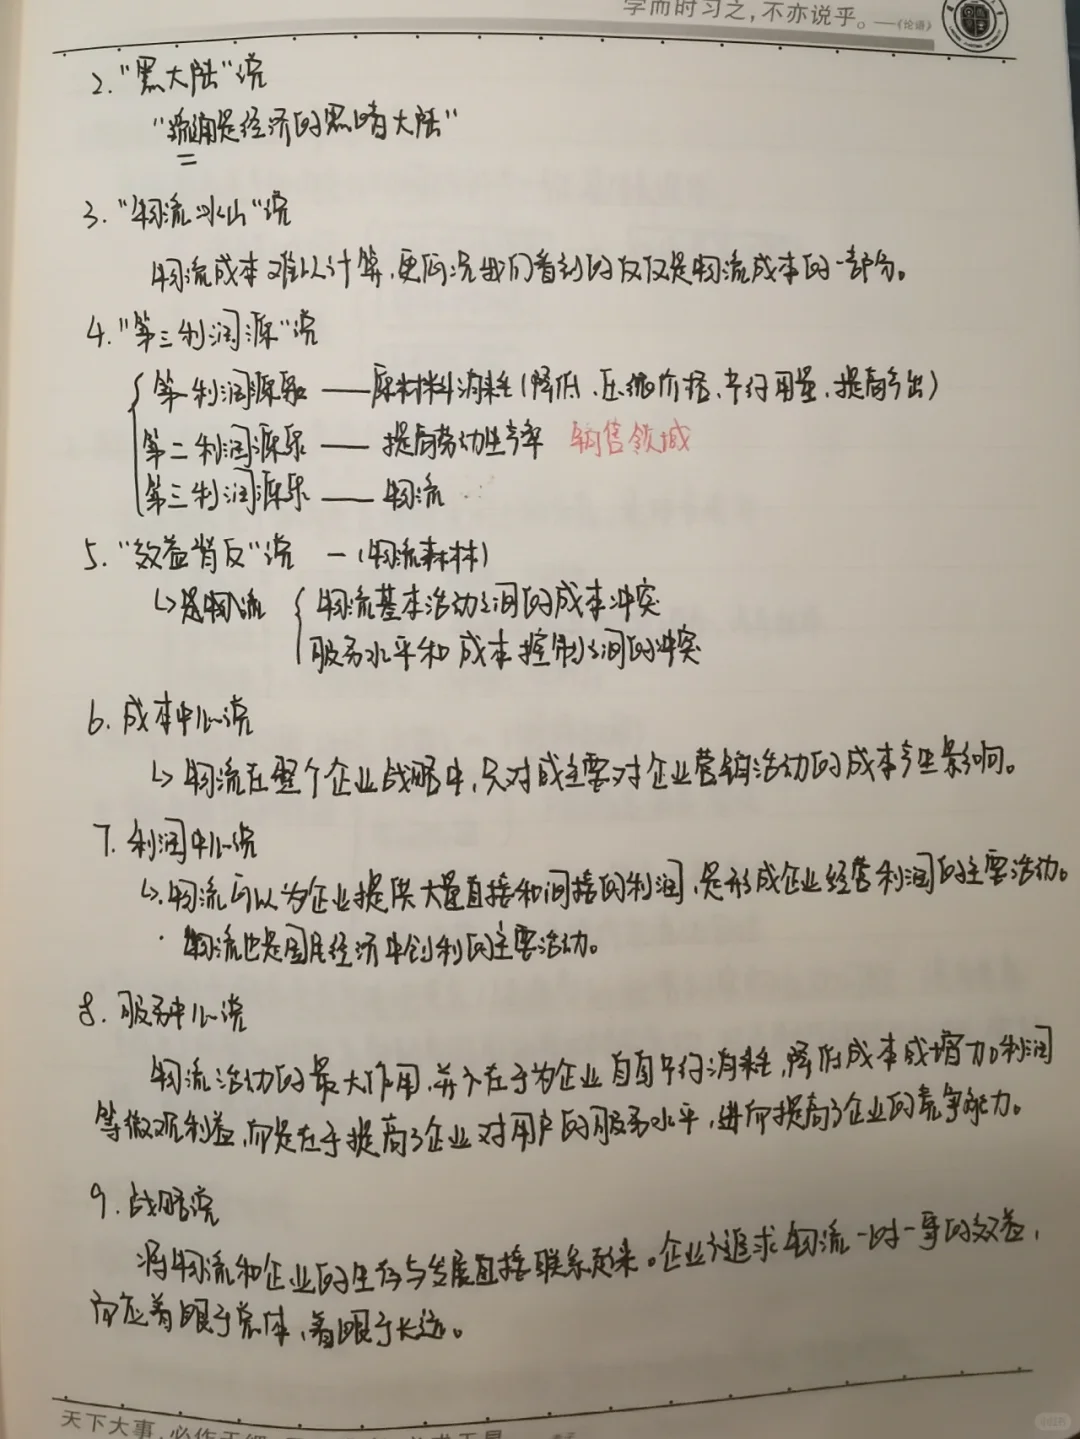 学而时习之，不亦说乎。——《论语》
2. "黑大陆"说
"流通是经济的黑暗大陆"
3. "物流冰山"说
物流成本难以计算，更何况我们看到的仅仅是物流成本的一部分。
4. "第三利润源"说
第一利润源泉 —— 原材料消耗（降低、压缩价格、节约用量、提高产出）
第二利润源泉 —— 提高劳动生产率 销售领域
第三利润源泉 —— 物流
5. "效益背反"说 —（物流森林）
↳是物流 { 物流基本活动之间的成本冲突
服务水平和成本控制之间的冲突
6. 成本中心说
↳ 物流在整个企业战略中，只对成主要对企业营销活动的成本产生影响。
7. 利润中心说
↳.物流可以为企业提供大量直接和间接的利润，是形成企业经营利润的主要活动。
· 物流也是国民经济中创利的主要活动。
8. 服务中心说
物流活动的最大作用，并不在于为企业自身节约消耗，降低成本或增加利润
等微观利益，而是在于提高了企业对用户的服务水平，进而提高了企业的竞争能力。
9. 战略说
将物流和企业的生存与发展直接联系起来。企业不追求物流一时一事的效益，
而应着眼于总体，着眼于长远。
天下大事，必作于细